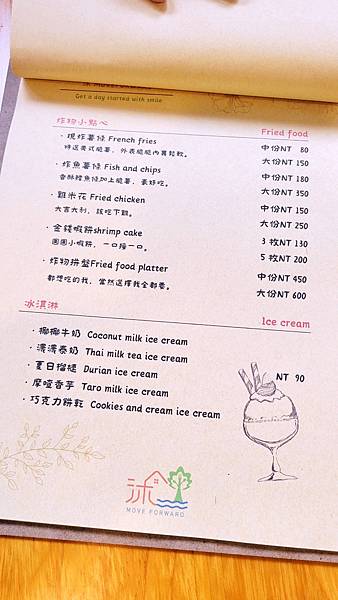 Get a day started with smile
炸物小點心 Fried food
・現炸薯條 French fries 中份NT 80
特選美式脆薯，外表脆脆內裏鬆軟。 大份NT 150
・炸魚薯條 Fish and chips 中份NT 180
香酥鱈魚條加上脆薯，最好吃。 大份NT 350
・雞米花 Fried chicken 中份NT 150
大吉大利，該吃下雞。 大份NT 250
・金錢蝦餅shrimp cake 3 枚NT 130
圓圓小蝦餅，一口接一口。 5 枚NT 200
・炸物拼盤Fried food platter 中份NT 450
都想吃的我，當然選擇我全都要。 大份NT 600
冰淇淋 Ice cream
・椰椰牛奶 Coconut milk ice cream
・濃濃泰奶 Thai milk tea ice cream
・夏日榴槤 Durian ice cream NT 90
・摩啞香芋 Taro milk ice cream
・巧克力餅乾 Cookies and cream ice cream
MOVE FORWARD